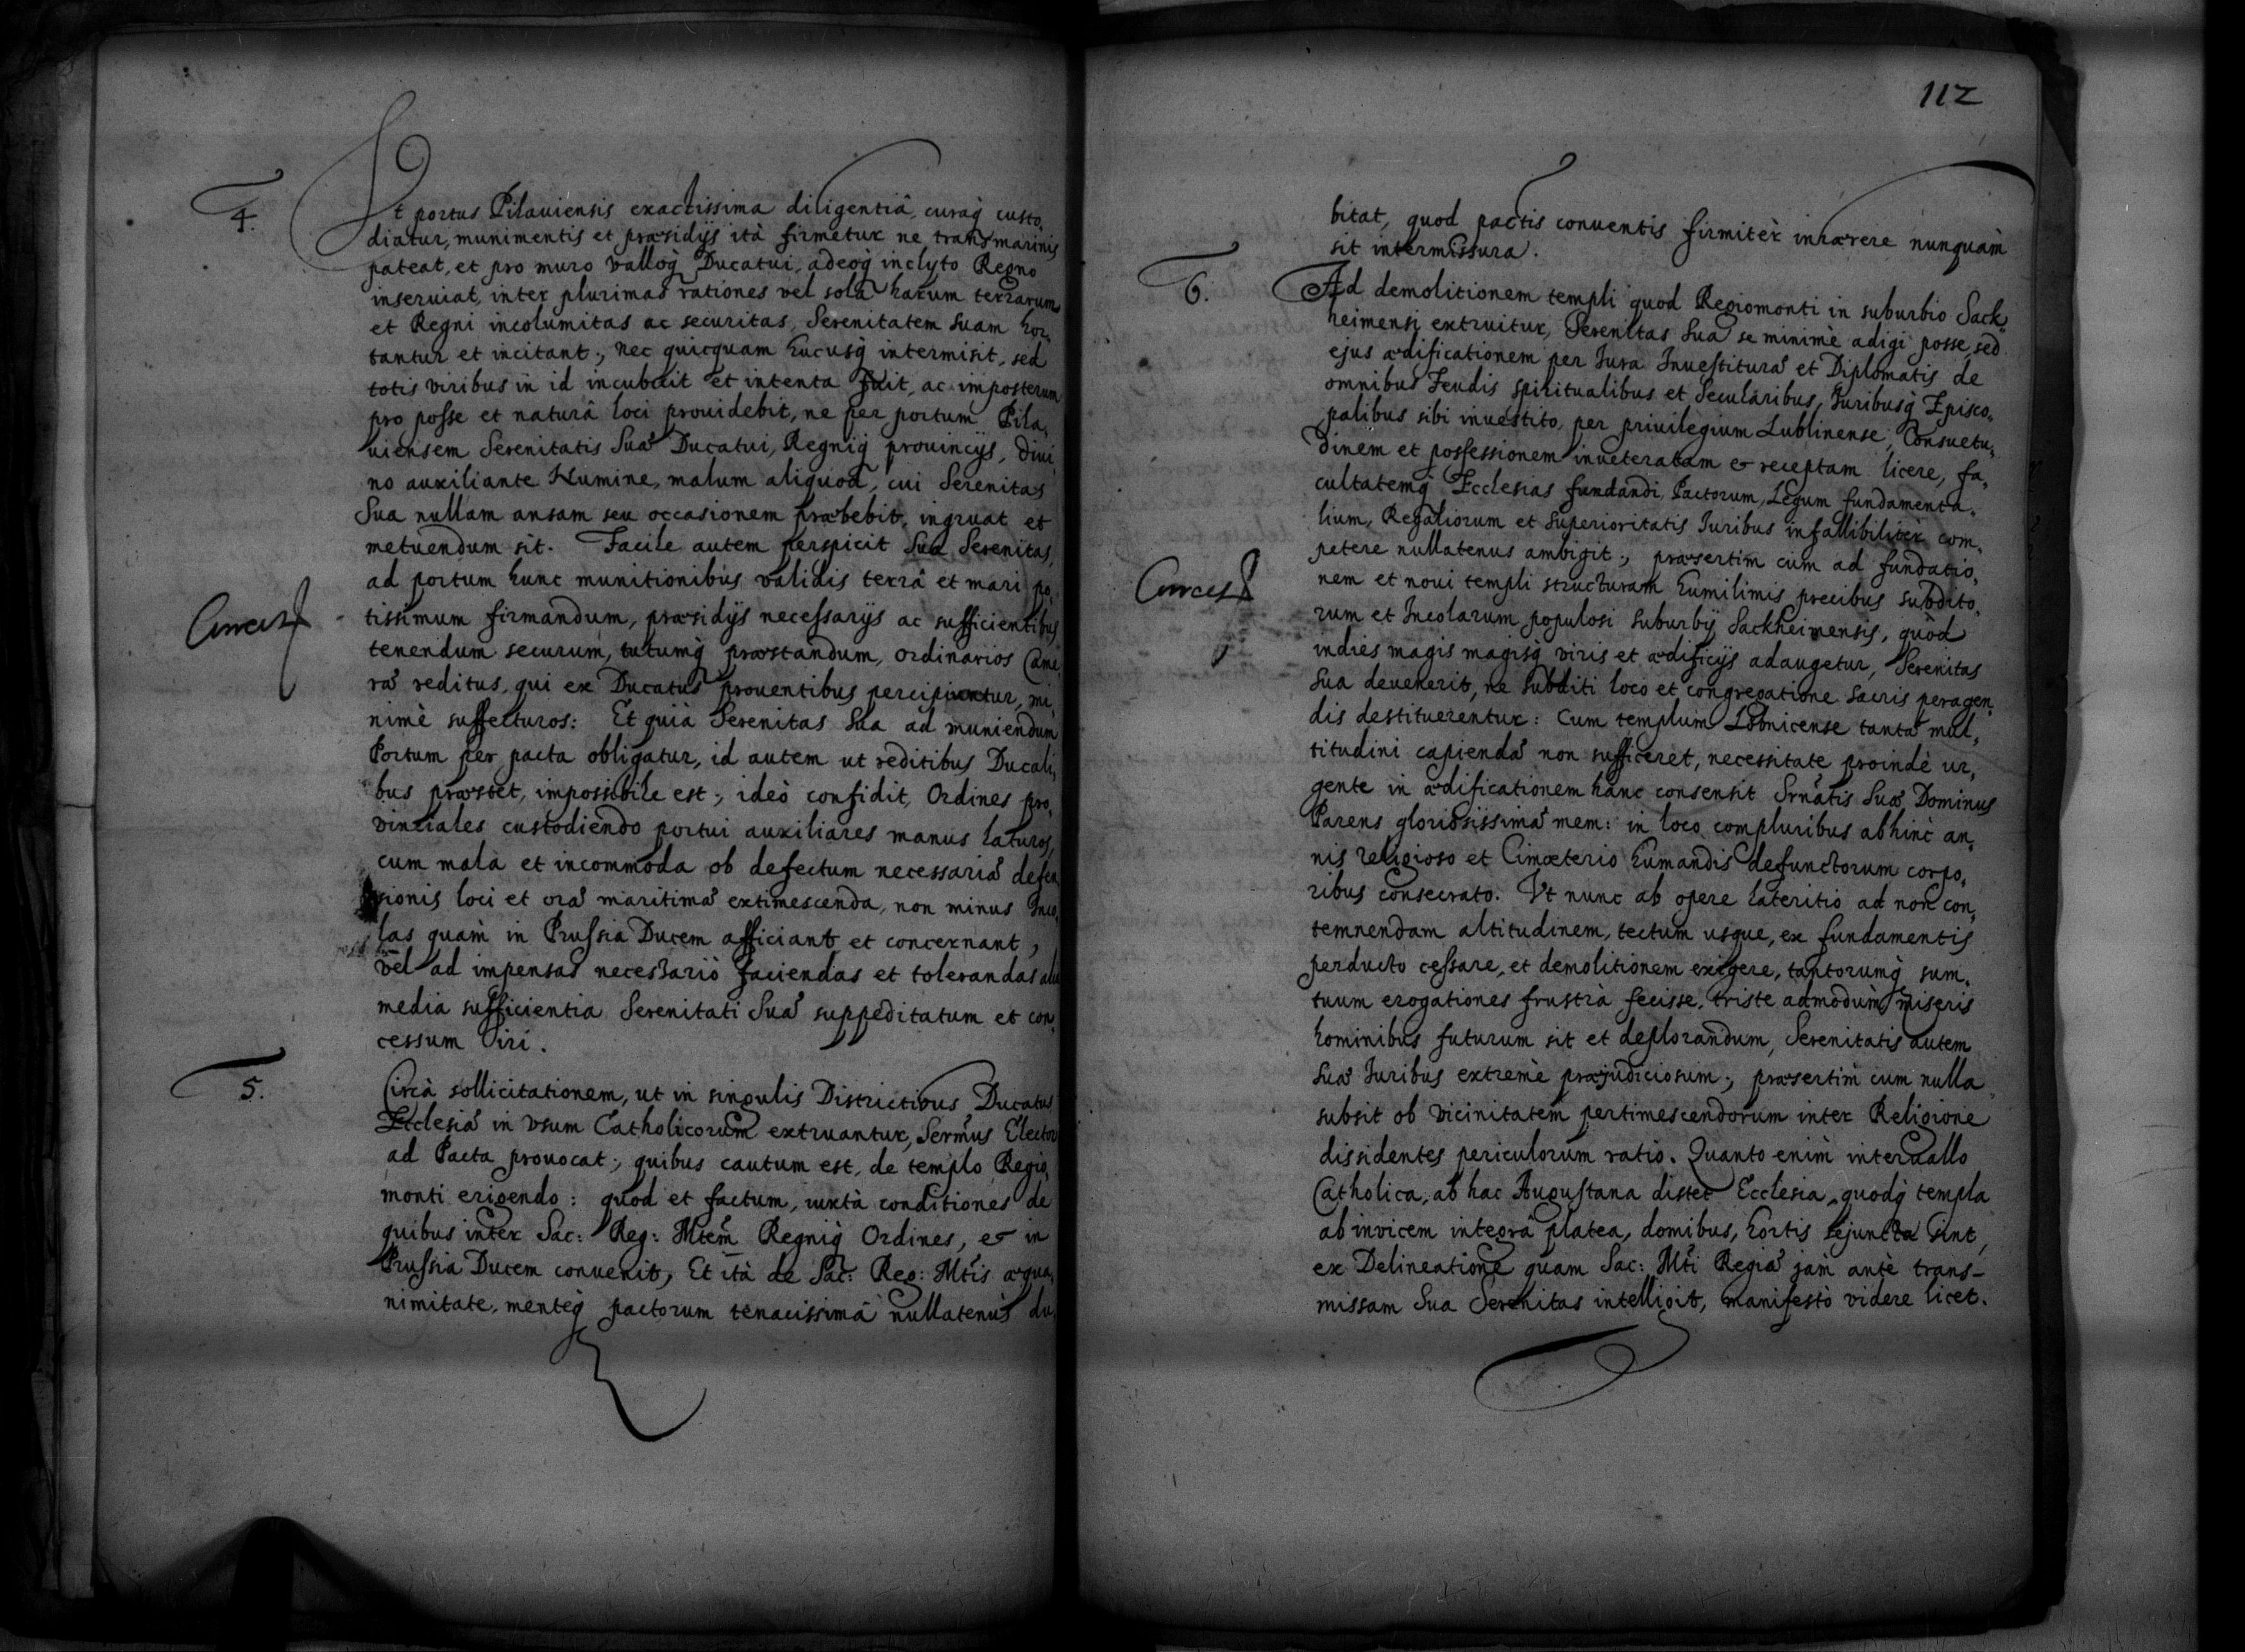 4.
Ut portus Pilauiensis exactissima diligentiâ, curaq́ custo,
diatur, munimentis et præsidijs ità firmetur ne transmarinis
pateat, et pro muro valloq́ Ducatui, adeoq́ inclyto Regno
inseruiat, inter plurimas rationes vel sola harum terrarum
et Regni incolumitas ac securitas, Serenitatem suam hor,
tantur et incitant:, nec quicquam hucusq́ intermisit, sed
totis viribus in id incubuit et intenta fuit, ac imposterum
pro posse et naturâ loci prouidebit, ne per portum Pila,
uiensem Serenitatis Suæ Ducatui, Regniq́ prouincijs, diui,
no auxiliante Numine, malum aliquod, cui Serenitas
Sua nullam ansam seu occasionem præbebit, ingruat et
metuendum sit. Facile autem perspicit Sua Serenitas,
ad portum hunc munitionibus validis terrâ et mari po,
tissimum firmandum, præsidijs necessarijs ac sufficientibus
tenendum securum, tutumq́ præstandum, ordinarios Came
ræ reditus, qui ex Ducatus prouentibus percipiuntur, mi,
nimè suffecturos: Et quià Serenitas Sua ad muniendum
Portum per pacta obligatur, id autem ut reditibus Ducali,
bus præstet, impossibile est:, ideò confidit, Ordines pro,
vinciales custodiendo portui auxiliares manus laturos,
cum mala et incommoda ob defectum necessariæ defen
sionis loci et oræ maritimæ extimescenda, non minus Inco,
las quam in Prussia Ducem afficiant et concernant,
vel ad impensas necessariò faciendas et tolerandas alia
media sufficientia Serenitati Suæ suppeditatum et con,
cessum iri.
5.
Circà sollicitationem, ut in singulis Districtibus Ducatus
Ecclesiæ in vsum Catholicorum extruantur, Sermus Elector
ad Pacta prouocat:, quibus cautum est, de templo Regio,
monti erigendo: quod et factum, iuxtà conditiones de
quibus inter Sac: Reg: Mtem Regniq́ Ordines, et in
Prussia Ducem conuenit, Et ità de Sac: Reg: Mtis æqua,
nimitate, menteq́ pactorum tenacissimâ nullatenus du,
112
bitat, quod pactis conuentis firmitèr inhærere nunquàm
sit intermissura.
6.
Ad demolitionem templi quod Regiomonti in suburbio Sack,
heimensi extruitur, Serenitas Sua se minimè adigi posse, sed
ejus ædificationem per Jura Inuestituræ et Diplomatis de
omnibus Feudis spiritualibus et Secularibus, Juribusq́ Episco,
palibus sibi inuestito, per priuilegium Lublinense, Consuetu,
dinem et possessionem inueteratam et receptam licere, fa,
cultatemq́ Ecclesias fundandi, Pactorum, Legum fundamenta,
lium, Regaliorum et Superioritatis Juribus infallibilitèr com,
petere nullatenus ambigit:, præsertim cum ad fundatio,
nem et noui templi structuram humilimis precibus subdito,
rum et Incolarum populosi suburbij Sackheimensis, quòd
indies magis magisq́ viris et ædificijs adaugetur, Serenitas
Sua deuenerit, ne subditi loco et congregatione sacris peragen,
dis destituerentur: Cum templum Löbnicense tantæ mul,
titudini capiendæ non sufficeret, necessitate proindè ur,
gente in ædificationem hanc consensit Srnãtis Suæ Dominus
Parens gloriosissimæ mem: in loco compluribus abhinc an,
nis religioso et Cimæterio humandis defunctorum corpo,
ribus consecrato. Vt nunc ab opere lateritio ad non con,
temnendam altitudinem, tectum usque, ex fundamentis
perducto cessare, et demolitionem exigere, tantorumq́ sum,
tuum erogationes frustrà fecisse, triste admodùm miseris
hominibus futurum sit et deplorandum, Serenitatis autem
Suæ Juribus extremè præjudiciosum:, præsertim cum nulla
subsit ob vicinitatem pertimescendorum inter Religione
dissidentes periculorum ratio. Quanto enim interuallo
Catholica, ab hac Augustana distet Ecclesia, quodq́ templa
ab inuicem integrâ platea, domibus, hortis sejuncta sint,
ex Delineatione quam Sac: Mti Regiæ jam antè trans-
missam Sua Serenitas intelligit, manifestò videre licet.